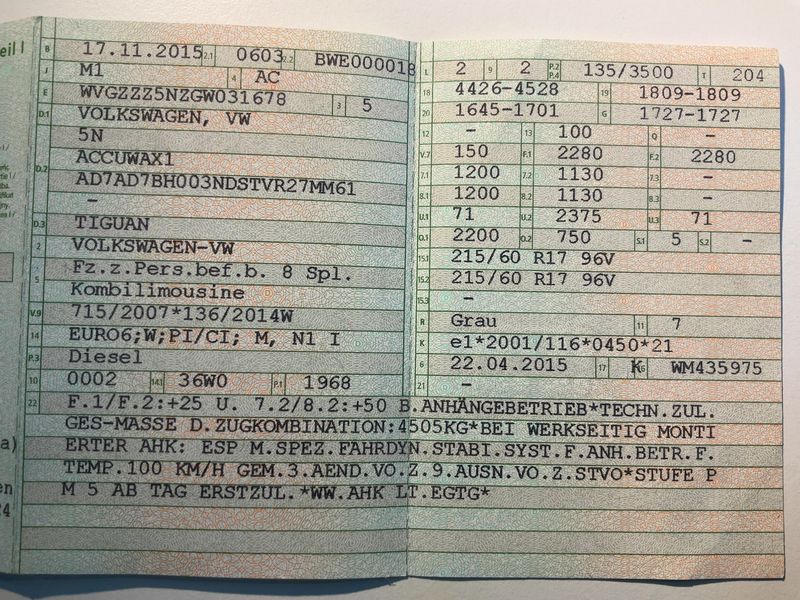 eil I
B 17.11.2015 2.1 0603 2.2 BWE000018
J M1 4 AC
E WVGZZZ5NZGW031678 3 5
D.1 VOLKSWAGEN, VW
5N
D.2 ACCUWAX1
AD7AD7BH003NDSTVR27MM61
–
D.3 TIGUAN
2 VOLKSWAGEN-VW
5 Fz.z.Pers.bef.b. 8 Spl.
Kombilimousine
V.9 715/2007*136/2014W
14 EURO6;W;PI/CI; M, N1 I
P.3 Diesel
10 0002 14.1 36W0 P.1 1968
L 2 9 2 P.2 P.4 135/3500 T 204
18 4426-4528 19 1809-1809
20 1645-1701 G 1727-1727
12 – 13 100 Q –
V.7 150 F.1 2280 F.2 2280
7.1 1200 7.2 1130 7.3 –
8.1 1200 8.2 1130 8.3 –
U.1 71 U.2 2375 U.3 71
O.1 2200 O.2 750 S.1 5 S.2 –
15.1 215/60 R17 96V
15.2 215/60 R17 96V
15.3 –
R Grau 11 7
K e1*2001/116*0450*21
6 22.04.2015 17 K 16 WM435975
21 –
22 F.1/F.2:+25 U. 7.2/8.2:+50 B.ANHÄNGEBETRIEB*TECHN.ZUL.
GES-MASSE D.ZUGKOMBINATION:4505KG*BEI WERKSEITIG MONTI
ERTER AHK: ESP M.SPEZ.FAHRDYN.STABI.SYST.F.ANH.BETR.F.
TEMP.100 KM/H GEM.3.AEND.VO.Z.9.AUSN.VO.Z.STVO*STUFE P
M 5 AB TAG ERSTZUL.*WW.AHK LT.EGTG*
a)
en
24